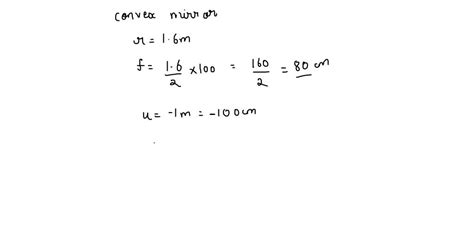 convex mirror
r = 1.6m
f = 1.6/2 × 100 = 160/2 = 80 cm
u = -1m = -100cm